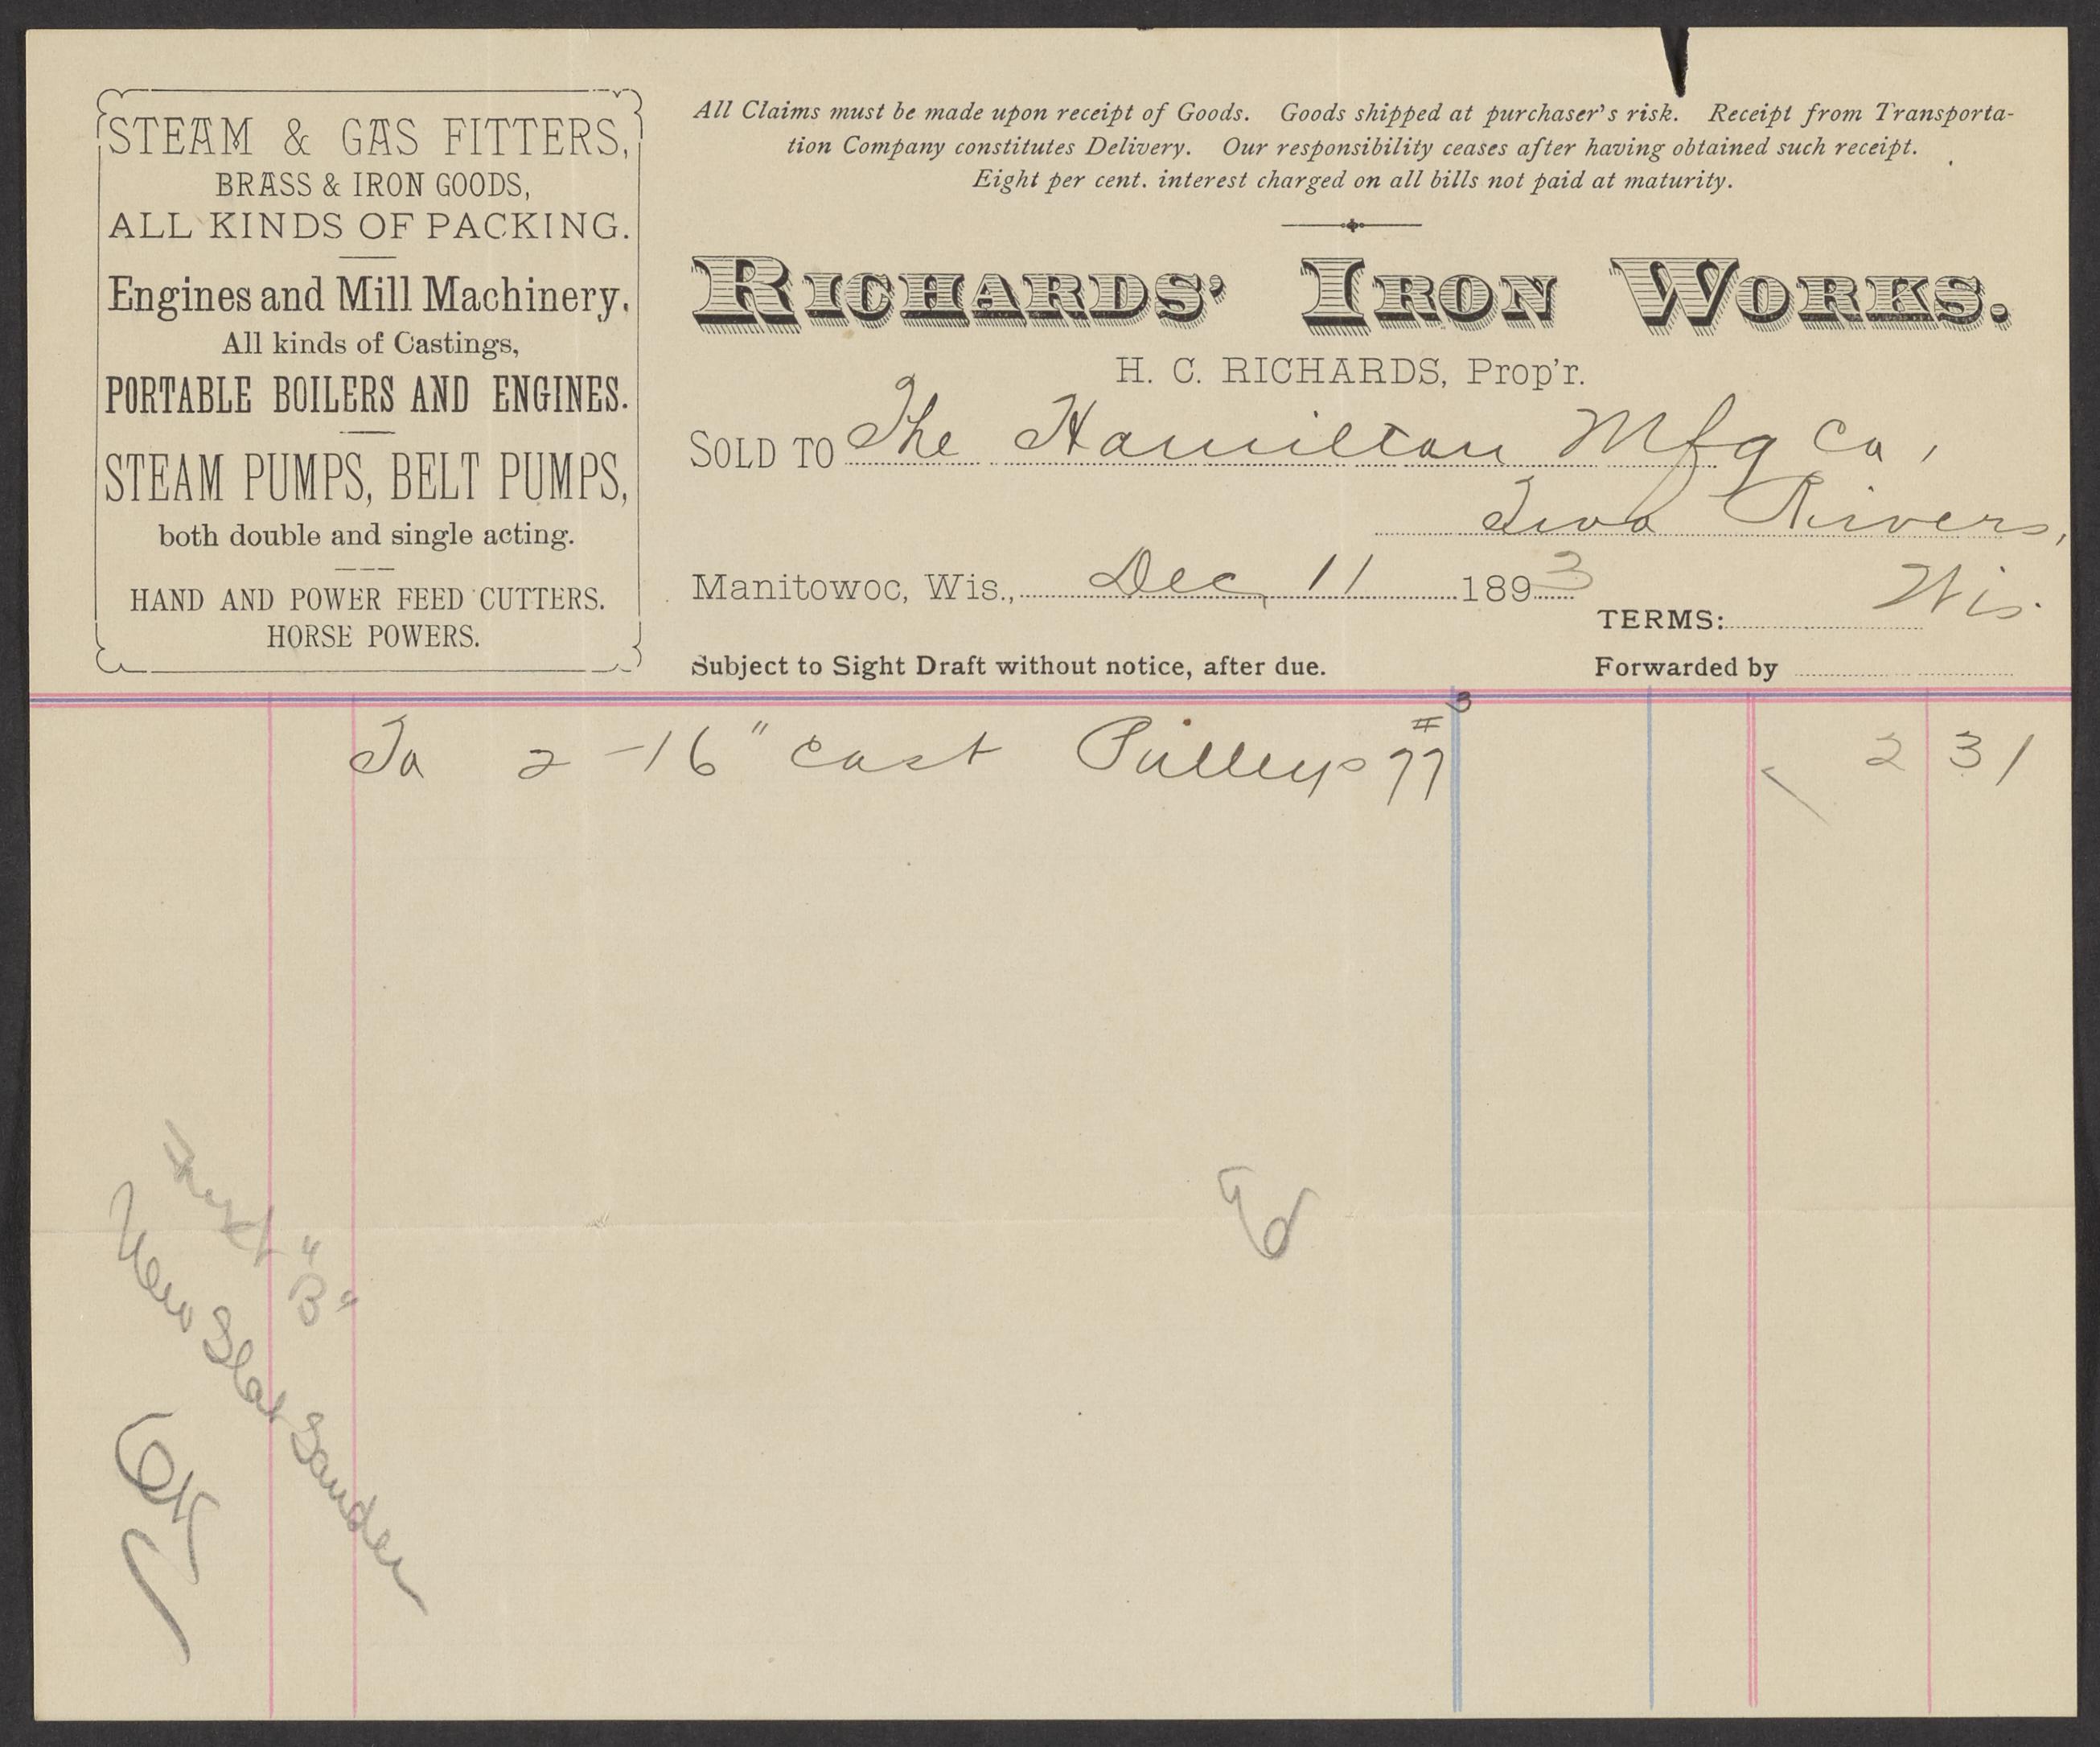 STEAM & GAS FITTERS,
BRASS & IRON GOODS,
ALL KINDS OF PACKING.
Engines and Mill Machinery.
All kinds of Castings,
PORTABLE BOILERS AND ENGINES.
STEAM PUMPS, BELT PUMPS,
both double and single acting.
HAND AND POWER FEED CUTTERS.
HORSE POWERS.
All Claims must be made upon receipt of Goods. Goods shipped at purchaser's risk. Receipt from Transporta-
tion Company constitutes Delivery. Our responsibility ceases after having obtained such receipt.
Eight per cent. interest charged on all bills not paid at maturity.
RICHARDS' IRON WORKS.
H. C. RICHARDS, Prop'r.
SOLD TO The Hamilton Mfg Co,
Two Rivers,
Wis.
Manitowoc, Wis., Dec, 11 1893
TERMS:
Subject to Sight Draft without notice, after due.
Forwarded by
To 2 - 16" cast Pulleys 77# 3 2 31
"B"
New Slat Sander
OK